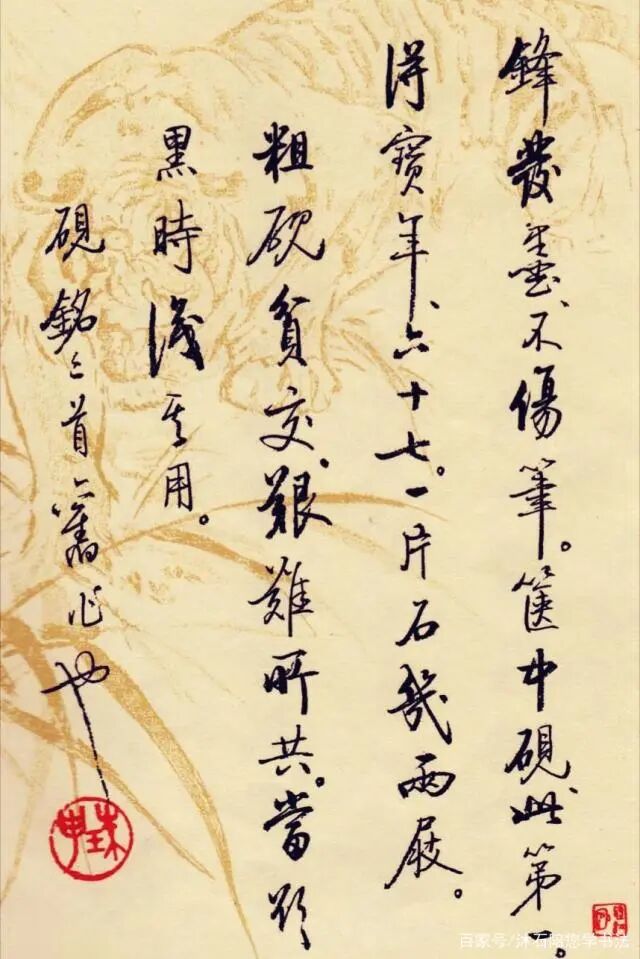 鋒發墨、不傷筆。篋中硯、此第一。
得寶年、六十七。一片石幾兩屐。
粗硯貧交、艱難所共。當欲
黑時識其用。
硯銘首舊作也
百家号/沐石陪您学书法